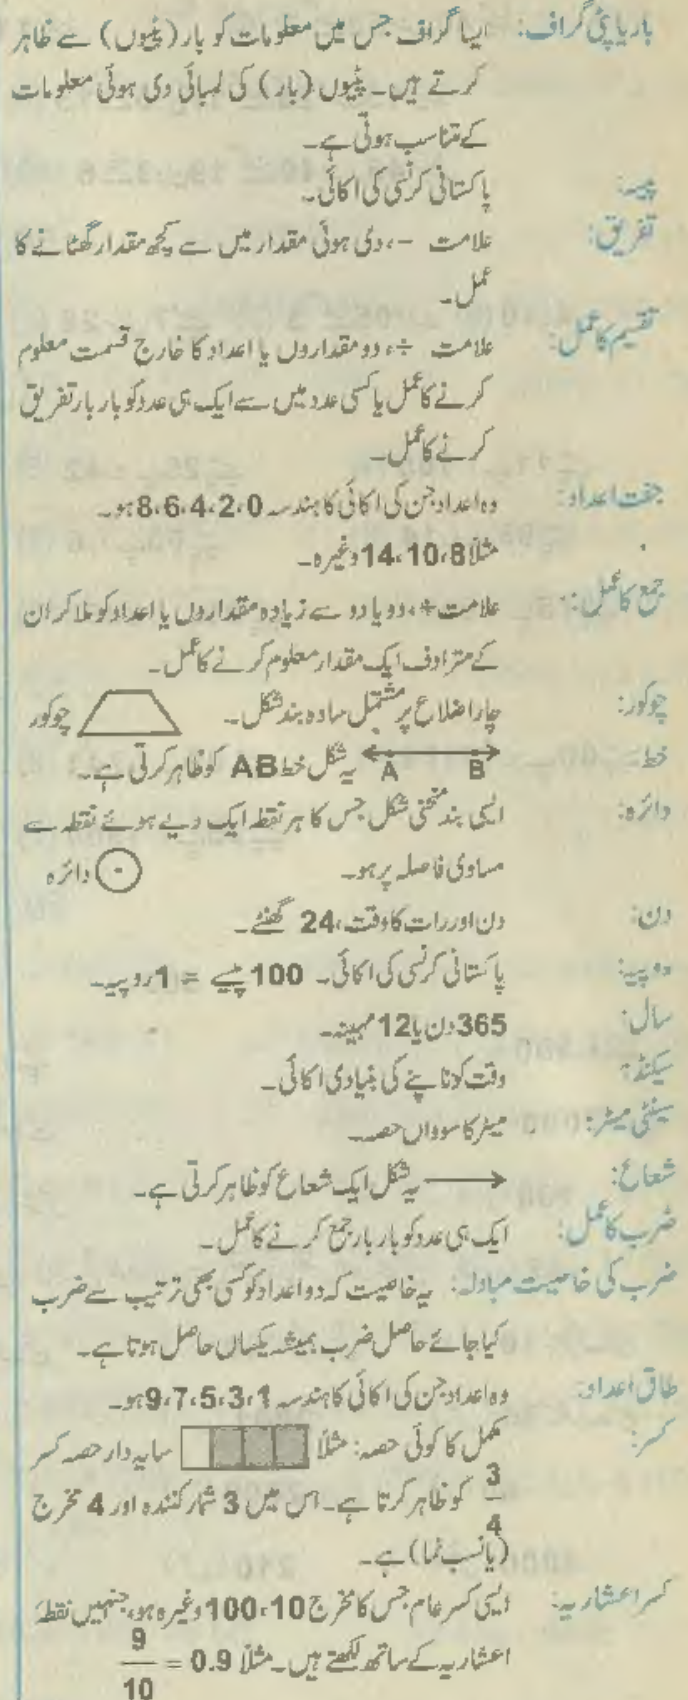 بار یا پٹی گراف: ایسا گراف جس میں معلومات کو بار (پٹیوں) سے ظاہر
کرتے ہیں۔ پٹیوں (بار) کی لمبائی دی ہوئی معلومات
کے متناسب ہوتی ہے۔
پیسہ: پاکستانی کرنسی کی اکائی۔
تفریق: علامت −، دی ہوئی مقدار میں سے کچھ مقدار گھٹانے کا
عمل۔
تقسیم کا عمل: علامت ÷، دو مقداروں یا اعداد کا خارج قسمت معلوم
کرنے کا عمل یا کسی عدد میں سے ایک ہی عدد کو بار بار تفریق
کرنے کا عمل۔
جفت اعداد: وہ اعداد جن کی اکائی کا ہندسہ 0، 2، 4، 6، 8 ہو۔
مثلاً 8، 10، 14 وغیرہ۔
جمع کا عمل: علامت +، دو یا دو سے زیادہ مقداروں یا اعداد کو ملا کر ان
کے مترادف ایک مقدار معلوم کرنے کا عمل۔
چوکور: چار اضلاع پر مشتمل سادہ بند شکل۔ چوکور
خط: A B یہ شکل خط AB کو ظاہر کرتی ہے۔
دائرہ: ایسی بند منحنی شکل جس کا ہر نقطہ ایک دیے ہوئے نقطہ سے
مساوی فاصلہ پر ہو۔ دائرہ
دن: دن اور رات کا وقت، 24 گھنٹے۔
روپیہ: پاکستانی کرنسی کی اکائی۔ 100 پیسے = 1 روپیہ۔
سال: 365 دن یا 12 مہینہ۔
سیکنڈ: وقت کو ناپنے کی بنیادی اکائی۔
سینٹی میٹر: میٹر کا سوواں حصہ۔
شعاع: یہ شکل ایک شعاع کو ظاہر کرتی ہے۔
ضرب کا عمل: ایک ہی عدد کو بار بار جمع کرنے کا عمل۔
ضرب کی خاصیت مبادلہ: یہ خاصیت کہ دو اعداد کو کسی بھی ترتیب سے ضرب
کیا جائے حاصل ضرب ہمیشہ یکساں حاصل ہوتا ہے۔
طاق اعداد: وہ اعداد جن کی اکائی کا ہندسہ 1، 3، 5، 7، 9 ہو۔
کسر: مکمل کا کوئی حصہ: مثلاً سایہ دار حصہ کسر
3/4 کو ظاہر کرتا ہے۔ اس میں 3 شمار کنندہ اور 4 مخرج
(یا نسب نما) ہے۔
کسر اعشاریہ: ایسی کسر عام جس کا مخرج 10، 100 وغیرہ ہو، جنہیں نقطہ
اعشاریہ کے ساتھ لکھتے ہیں۔ مثلاً 0.9 = 9/10